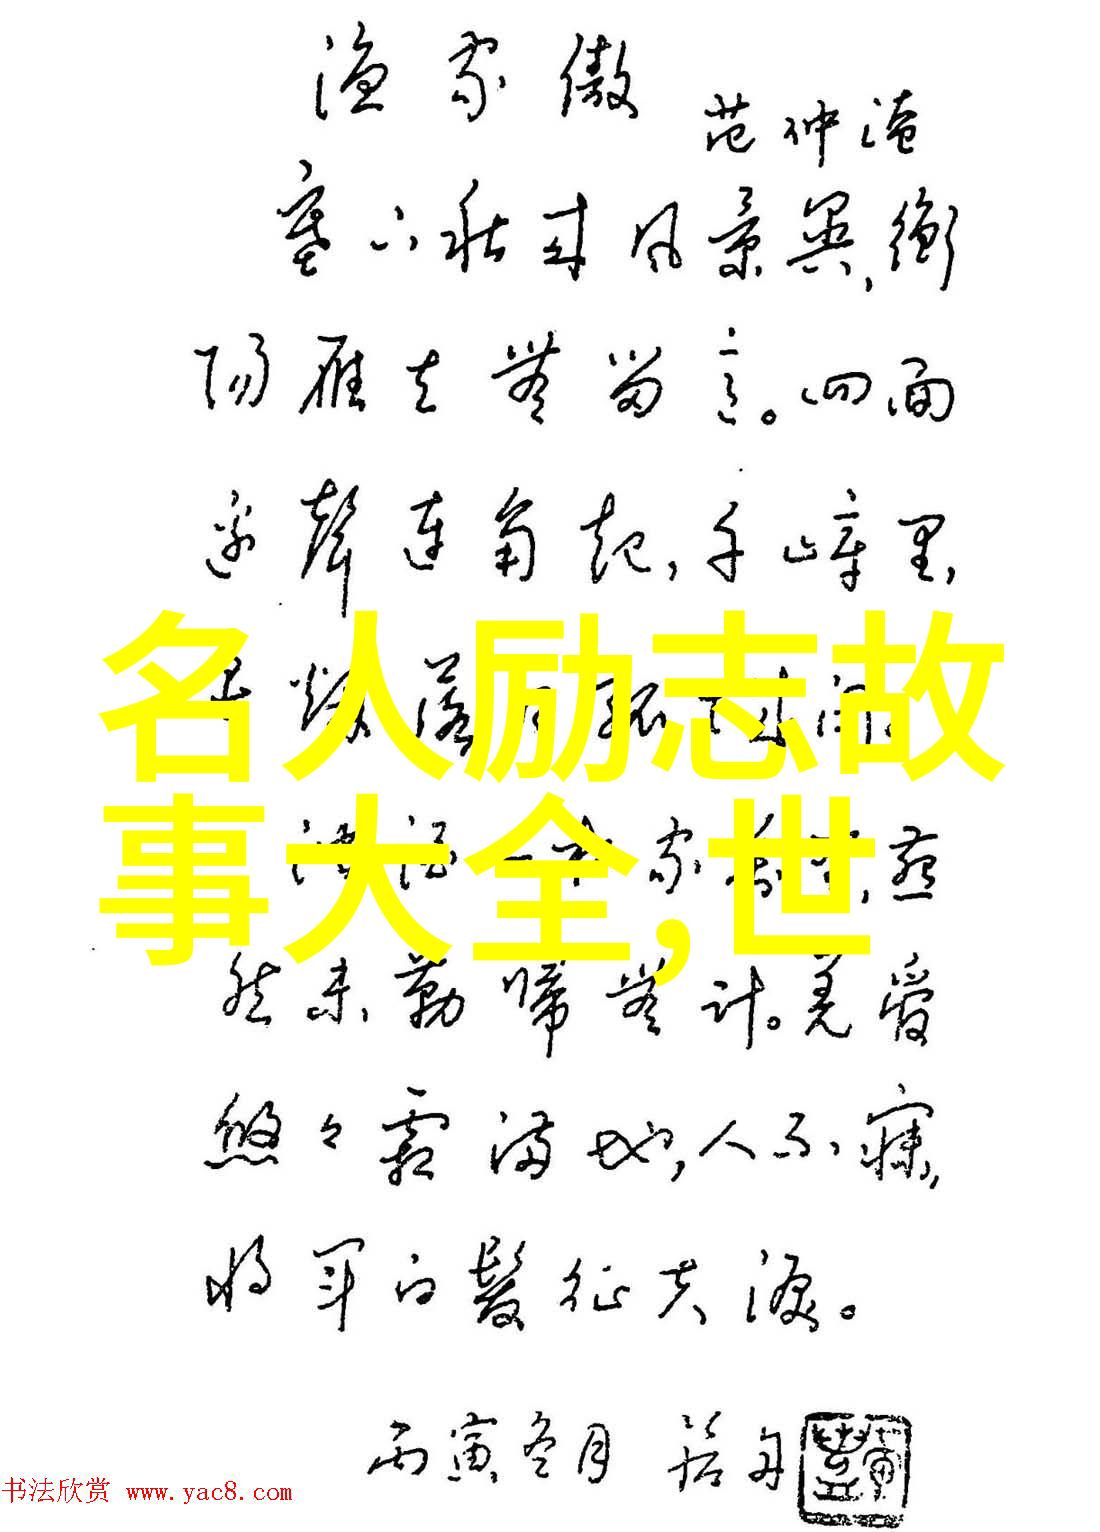 渔家傲 范仲淹
塞下秋来风景異,衡
陽雁去無留意。四面
边聲连角起,千嶂里,
烟落日孤城闭。
名人励志故
浊酒一杯家万里,燕
事大全,世
然未勒歸無计。羌管
悠々霜满地,人不寐,
将军白髮征夫淚。
丙寅冬月
书法欣赏 www.yac8.com